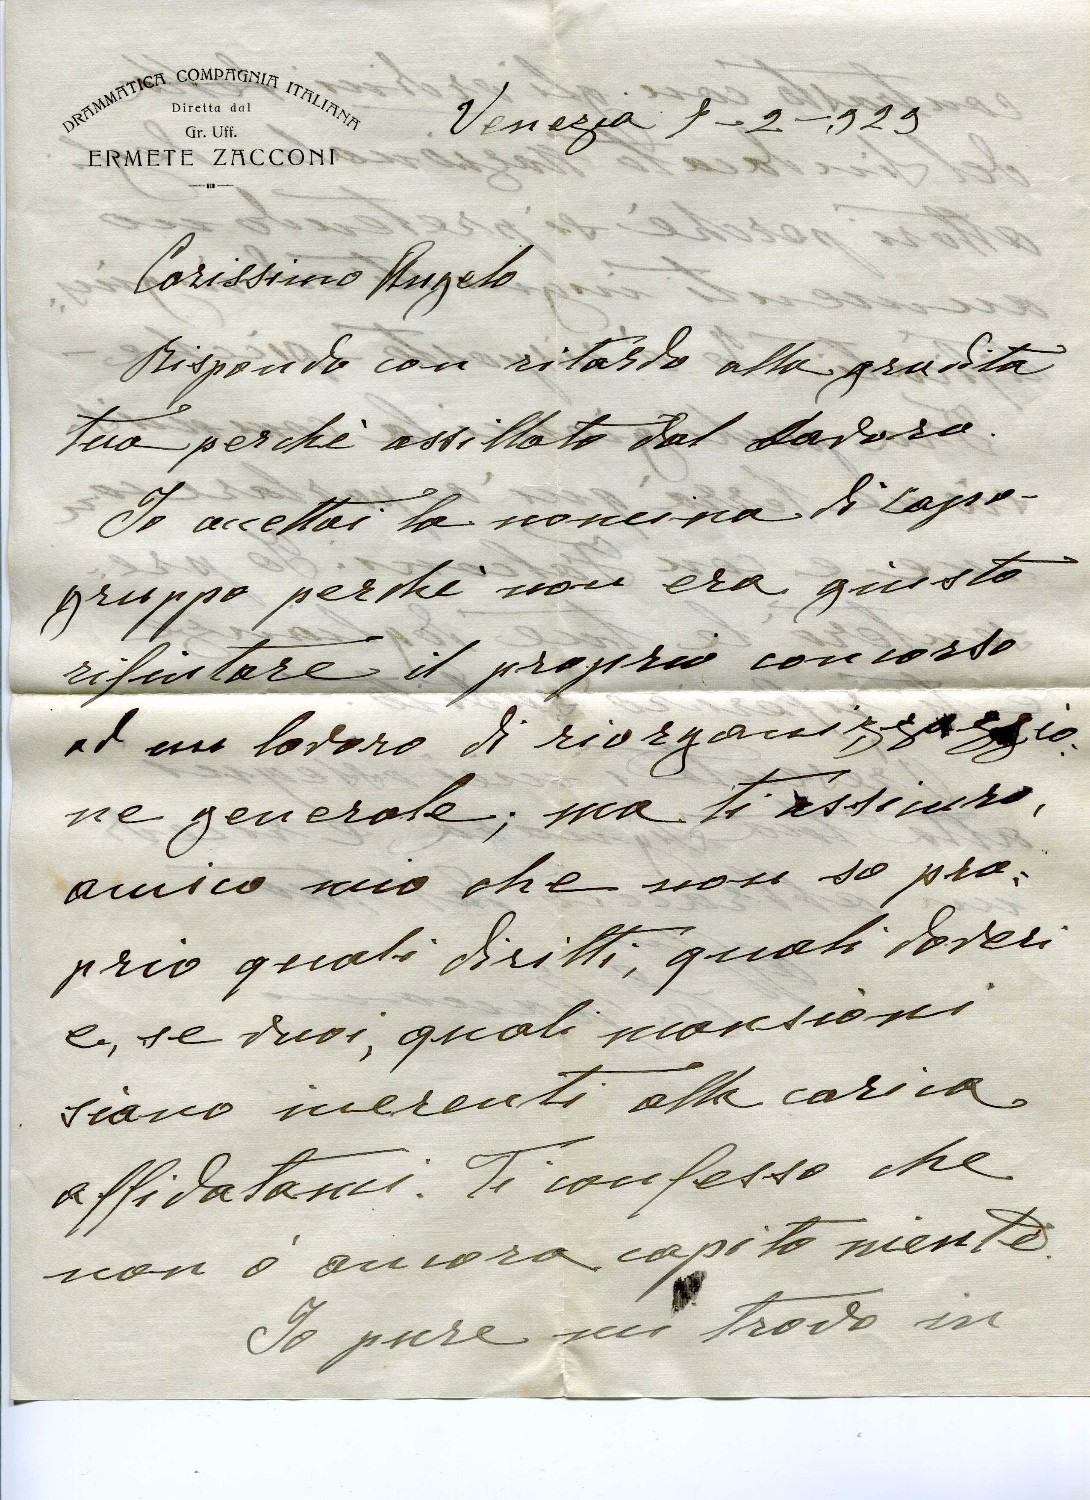 DRAMMATICA COMPAGNIA ITALIANA
Diretta dal
Gr. Uff.
ERMETE ZACCONI
Venezia 9-2-929
Carissimo Angelo
Rispondo con ritardo alla gradita
tua perchè assillato dal lavoro.
Io accettai la nomina di capo-
gruppo perchè non era giusto
rifiutare il proprio concorso
ad un lavoro di riorganizzazio-
ne generale; ma ti assicuro,
amico mio che non so pro-
prio quali diritti, quali doveri
e, se vuoi, quali mansioni
siano inerenti alla carica
affidatami. Ti confesso che
non ò ancora capito niente.
Io pure mi trovo in